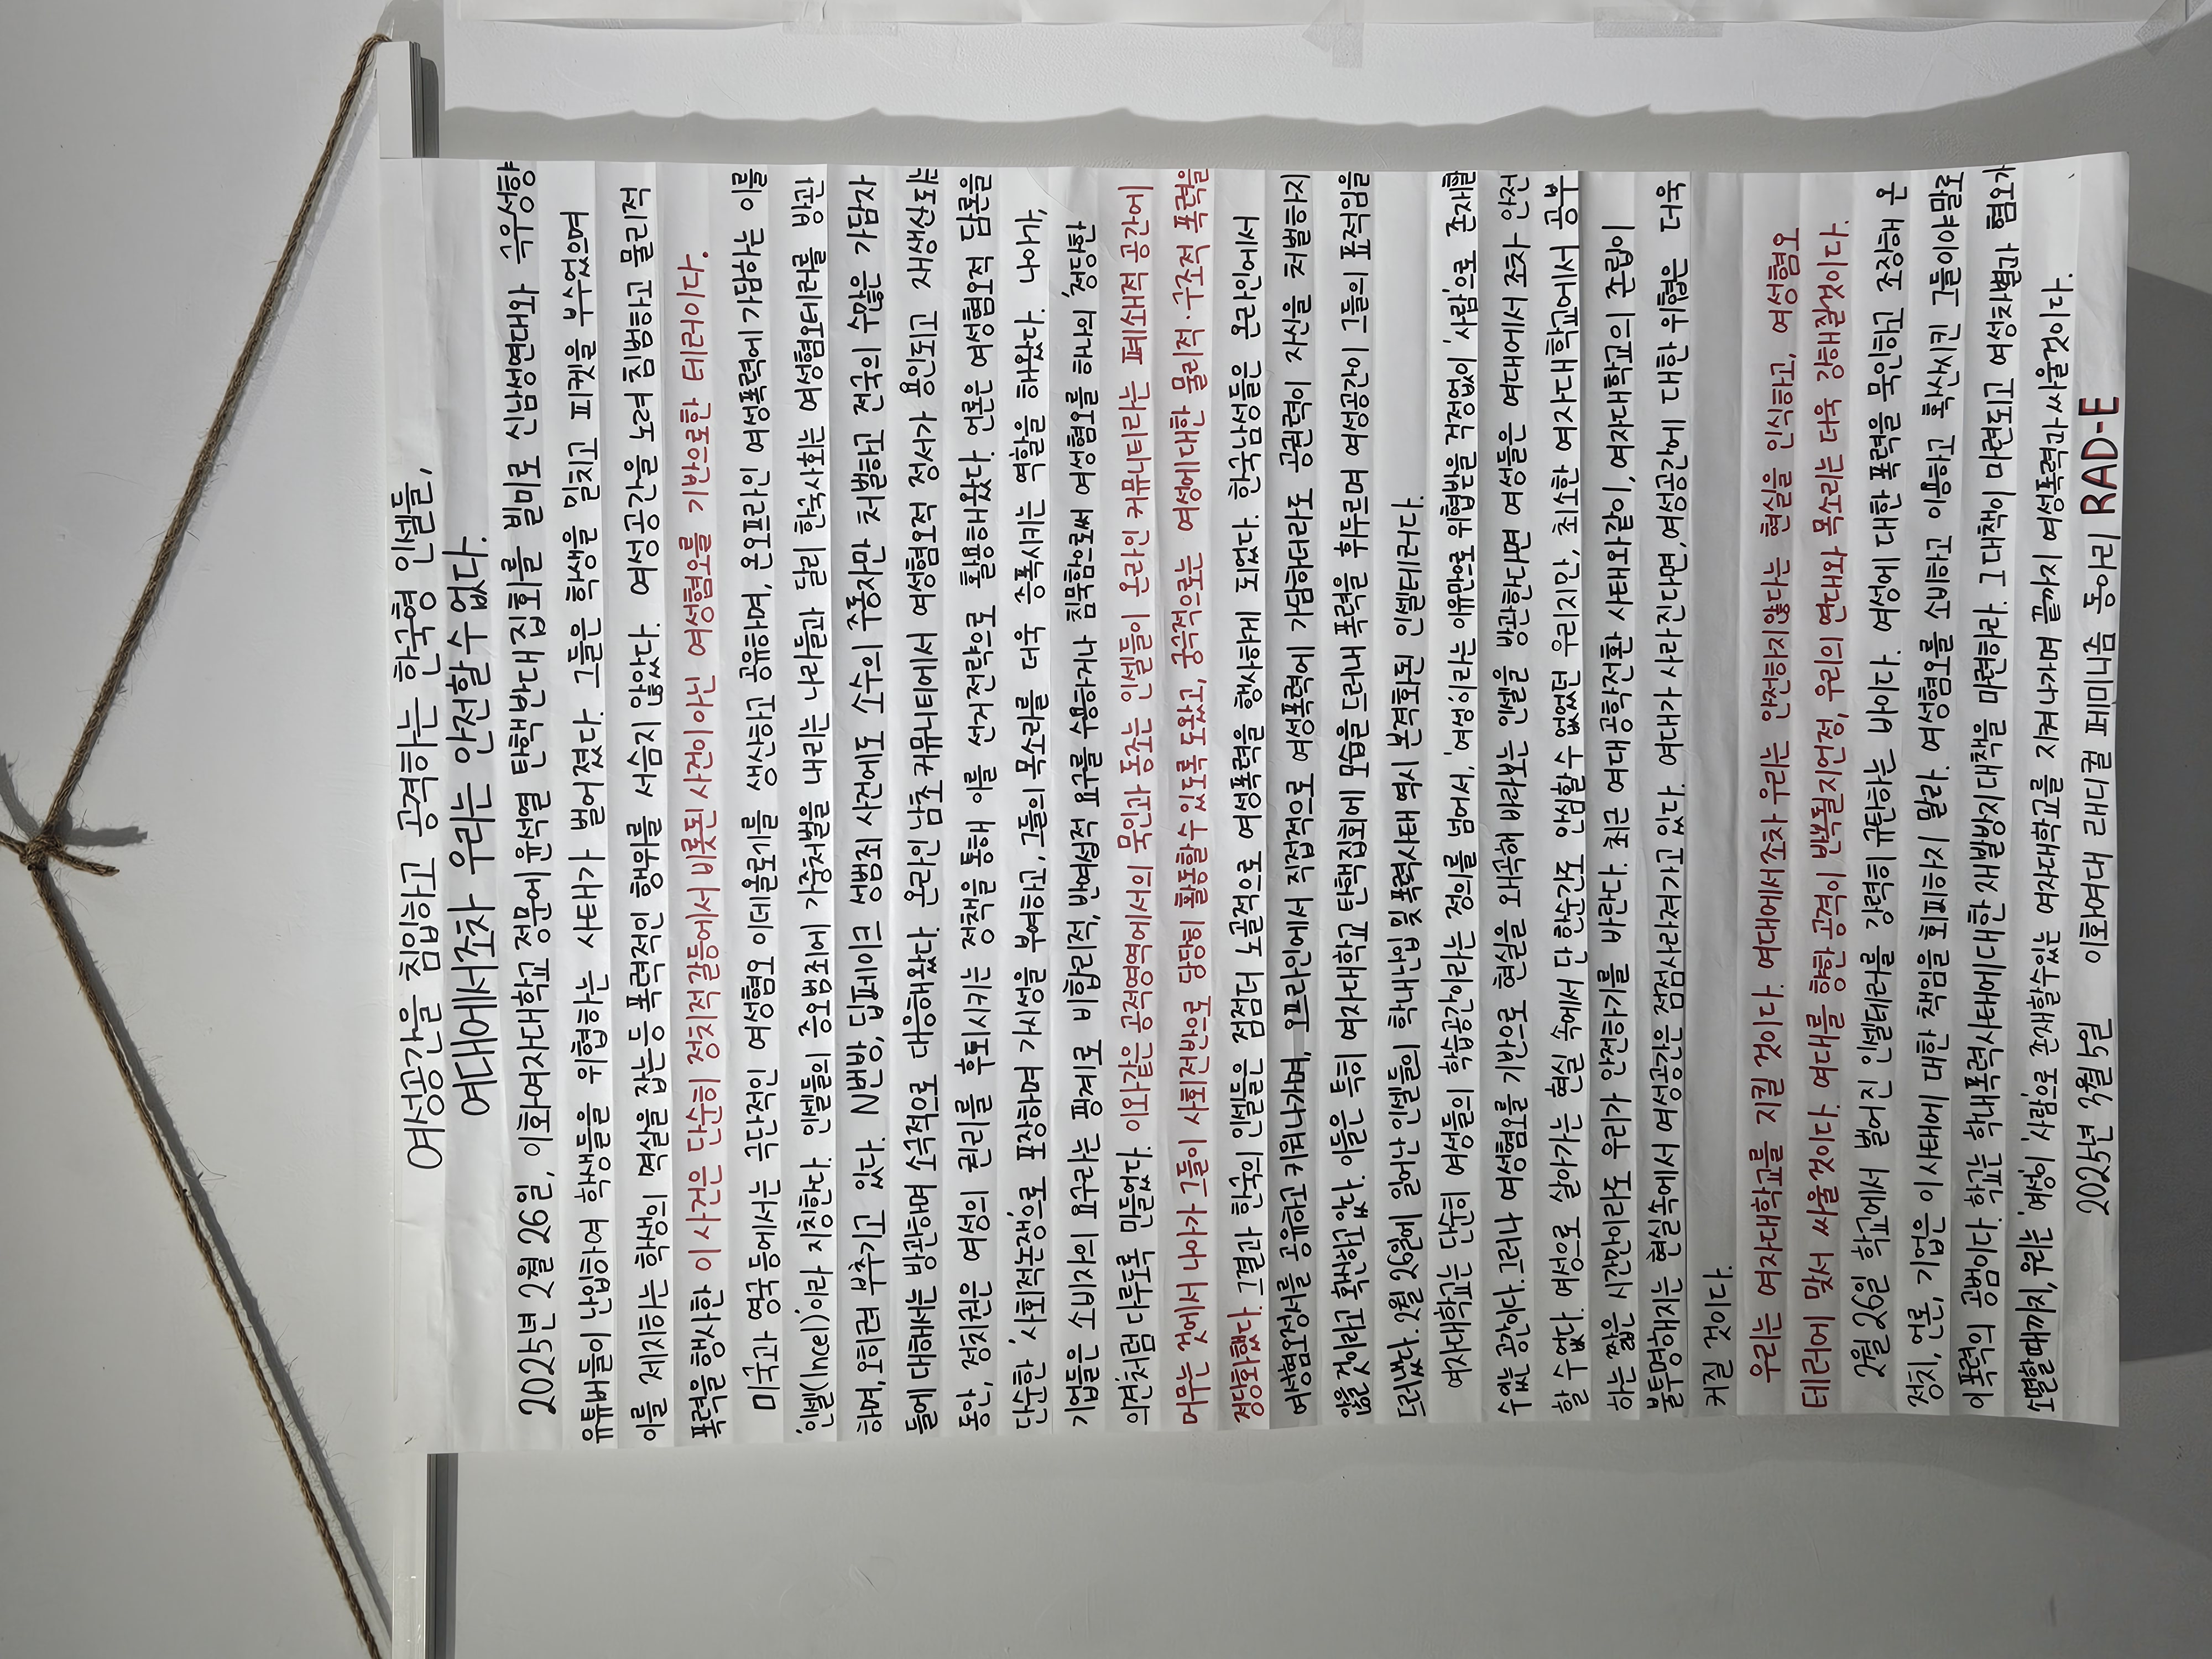 여성공간을 침입하고 공격하는 한국형 인셀들,
여대에서조차 우리는 안전할 수 없다.
2025년 2월 26일, 이화여자대학교 정문에 윤석열 탄핵반대집회를 빌미로 신남성연대와 극우성향
유튜버들이 난입하여 학생들을 위협하는 사태가 벌어졌다. 그들은 학생을 밀치고 피켓을 부수었으며
이를 제지하는 학생의 멱살을 잡는 등 폭력적인 행위를 서슴지 않았다. 여성공간을 노려 침범하고 물리적
폭력을 행사한 이 사건은 단순히 정치적 갈등에서 비롯된 사건이 아닌 여성혐오를 기반으로한 테러이다.
미국과 영국 등에서는 극단적인 여성혐오 이데올로기를 생산하고 공유하며, 온오프라인 여성폭력에 가담하는 이를
'인셀(Incel)'이라 지칭한다. 인셀들의 증오범죄에 가중처벌을 내리는 나라들과 달리 한국사회는 여성혐오테러를 방관
하며, 오히려 부추기고 있다. N번방, 딥페이크 성범죄 사건에도 소수의 주동자만 처벌하고 전국의 수많은 가담자
들에 대해서는 방관하며 소극적으로 대응해왔다. 온라인 남초 커뮤니티에서 여성혐오적 정서가 용인되고 재생산되는
동안, 정치권은 여성의 권리를 후퇴시키는 정책을 통해 이를 선거전략으로 활용해왔다. 언론은 여성혐오적 담론을
단순한 '사회적논쟁'으로 포장하며 가시성을 부여하고, 그들의 목소리를 더욱 증폭시키는 역할을 해왔다. 나아가,
기업들은 소비자의 요구라는 핑계로 비합리적, 반여성적 요구를 수용하거나 침묵함으로써 여성혐오를 하나의 '정당한
의견'처럼 다루도록 만들었다. 이와같은 공적영역에서의 묵인과 동조는 인셀들이 온라인 커뮤니티라는 폐쇄적 공간에
머무는 것에서 나아가 그들이 사회전반으로 당당히 활동할 수 있도록 도왔고, 궁극적으로는 여성에 대한 물리적·구조적 폭력을
정당화했다. 그결과 한국의 인셀들은 점점더 노골적으로 여성폭력을 행사하게 되었다. 한국남성들은 온라인에서
여성혐오정서를 공유하고 키워나가며, 오프라인에서 직접적으로 여성폭력에 가담하더라도 공권력이 자신을 처벌하지
않을 것이라고 확신하고 있다. 이들은 특히 여자대학교 탄핵집회에 모습을 드러내 폭력을 휘두르며 여성공간이 그들의 표적임을
드러냈다. 2월 26일에 일어난 인셀들의 학내난입 및 폭력사태 역시 본격화된 인셀테러다.
여자대학교는 단순히 여성들의 학습공간이라는 정의를 넘어서, '여성'이라는 이유만으로 위협받을 걱정없이 '사람'으로 존재할
수 있는 공간이다. 그러나 여성혐오를 기반으로 현실을 왜곡해 바라보는 인셀을 방관한다면 여성들은 여대에서 조차 안전
할 수 없다. 여성으로 살아가는 현실 속에서 단 한순간도 안심할 수 없었던 우리지만, 최소한 여자대학교에서 공부
하는 짧은 시간만이라도 우리가 안전하기를 바란다. 최근 여대 공학전환 사태와같이, 여자대학교의 존립이
불투명해지는 현실속에서 여성공간은 점점사라져가고 있다. 여대가 사라진다면, 여성공간에 대한 위협은 더욱
커질 것이다.
우리는 여자대학교를 지킬 것이다. 여대에서조차 우리는 안전하지않다는 현실을 인식하고, 여성혐오
테러에 맞서 싸울 것이다. 여대를 향한 공격이 반복될지언정, 우리의 연대와 목소리는 더욱 강해질것이다.
2월 26일 학교에서 벌어진 인셀테러를 강력히 규탄하는 바이다. 여성에 대한 폭력을 묵인하고 조장해 온
정치, 언론, 기업은 이 사태에 대한 책임을 회피하지 말라. 여성혐오를 소비하고 이용하고 확산시킨 그들이야말로
이 폭력의 공범이다. 학교는 학내폭력사태에 대한 재발방지 대책을 마련하라. 그 대책이 마련되고 여성차별과 혐오가
소멸할때까지, 우리는 '여성'이 '사람'으로 존재할수있는 여자대학교를 지켜나가며 끝까지 여성폭력과 싸울것이다.
2025년 3월 5일 이화여대 래디컬 페미니즘 동아리 RAD-E